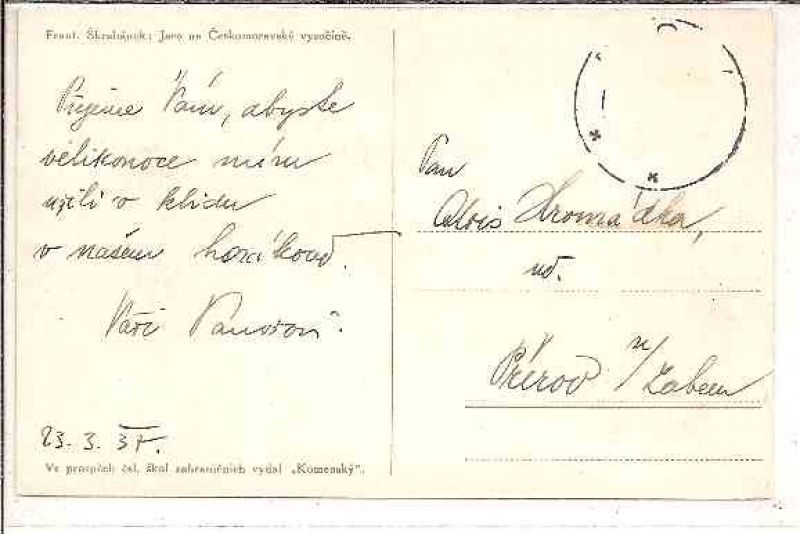 Frant. Škrabánek: Jaro na Českomoravské vysočině.
Přejeme Vám, abyste
velikonoce míru
užili v klidu
v našem
Vaši
23. 3. 37.
Ve prospěch čsl. škol zahraničních vydal „Komenský".
Pan
Alois Hromádka,
Přerov n/Labem